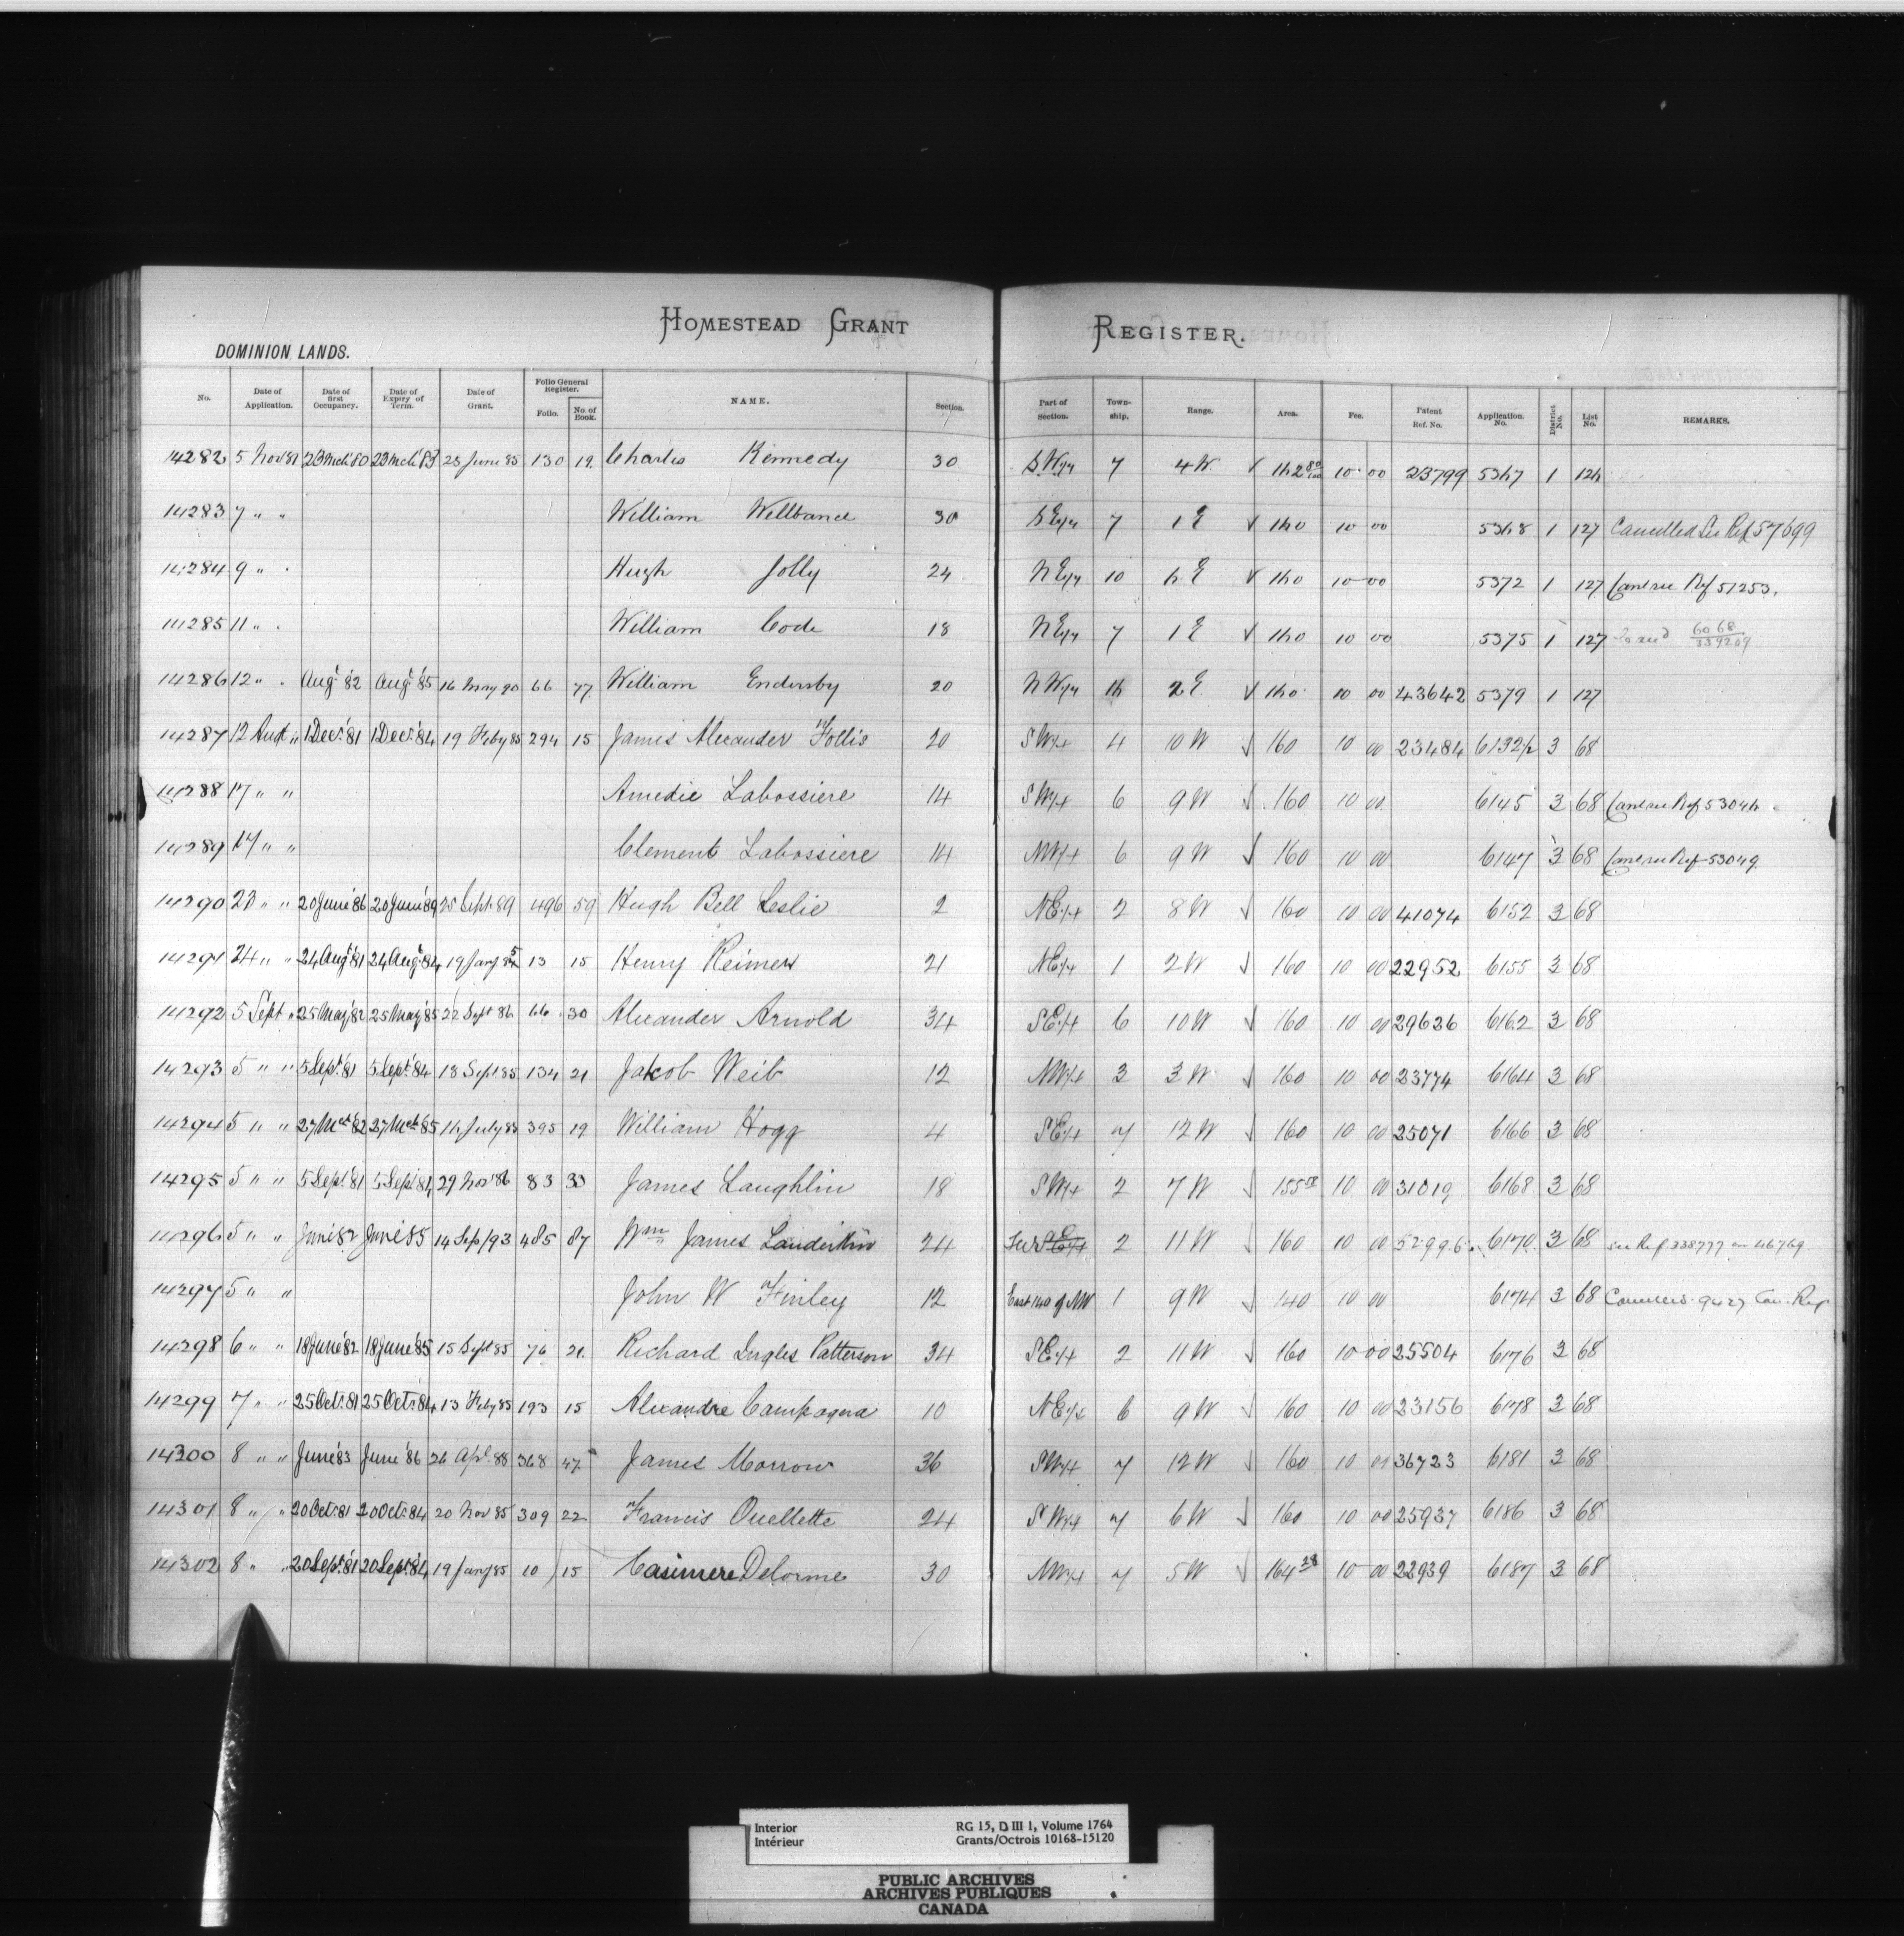 HOMESTEAD GRANT REGISTER.
DOMINION LANDS.
No. Date of Application. Date of first Occupancy. Date of Expiry of Term. Date of Grant. Folio General Register. Folio. No. of Book. NAME. Section. Part of Section. Town-ship. Range. Area. Fee. Patent Ref. No. Application. No. District No. List No. REMARKS.
14282 5 Nov 81 23 Mch '80 23 Mch '83 23 June 85 130 19. Charles Kennedy 30 S.W¼ 7 4 W. √ 162 80/100 10 00 23799 5367 1 126
14283 7 " " William Wellband 30 S E¼ 7 1 E √ 160 10 00 5368 1 127 Cancelled See Ref 57699
14284 9 " Hugh Jolly 24 N E¼ 10 6 E √ 160 10 00 5372 1 127 Canc see Ref 51253.
14285 11 " William Code 18 N E¼ 7 1 E √ 160 10 00 5375 1 127 6068 339209
14286 12 " Augt '82 Augt '85 16 May 90 66 77 William Endersby 20 N W¼ 16 2 E √ 160 10 00 43642 5379 1 127
14287 12 Augt " 1 Decr '81 1 Decr '84 19 Feby 85 294 15 James Alexander Follis 20 S W¼ 4 10 W √ 160 10 00 23484 6132½ 3 68
14288 17 " " Amedie Labossiere 14 S W¼ 6 9 W √ 160 10 00 6145 3 68 Canc see Ref 53046
14289 17 " " Clement Labossiere 14 N W¼ 6 9 W √ 160 10 00 6147 3 68 Canc see Ref 53049
14290 23 " " 20 June '86 20 June '89 25 Sept. 89 496 59 Hugh Bell Leslie 2 N E¼ 2 8 W √ 160 10 00 41074 6152 3 68
14291 24 " " 24 Augt '81 24 Augt '84 19 Jany 85 13 15 Henry Reimer 21 N E¼ 1 2 W √ 160 10 00 22952 6155 3 68
14292 5 Sept " 25 May '82 25 May '85 22 Sept 86 66 30 Alexander Arnold 34 S E¼ 6 10 W √ 160 10 00 29626 6162 3 68
14293 5 " " 5 Sept '81 5 Sept '84 18 Sept 85 134 21 Jakob Weib 12 N W¼ 3 3 W √ 160 10 00 23774 6164 3 68
14294 5 " " 27 Mch '82 27 Mch '85 16 July 85 395 19 William Hogg 4 S E¼ 7 12 W √ 160 10 00 25071 6166 3 68
14295 5 " " 5 Sept '81 5 Sept '84 29 Nov '86 83 33 James Laughlin 18 S W¼ 2 7 W √ 155 10 00 31019 6168 3 68
14296 5 " " June '82 June '85 14 Sep/93 485 87 Wm James Lauderkin 24 S E¼ 2 11 W √ 160 10 00 52996 6170 3 68 see Ref. 338777 on 46769
14297 5 " " John W Finley 12 East 140 of NW 1 9 W √ 140 10 00 6174 3 68 9427 Can. Ref
14298 6 " " 18 June '82 18 June '85 15 Sept 85 76 21. Richard Ingles Patterson 34 S E¼ 2 11 W √ 160 10 00 25504 6176 3 68
14299 7 " " 25 Oct. 81 25 Oct. 84 13 Feby 85 193 15 Alexandre Campagna 10 N E¼ 6 9 W √ 160 10 00 23156 6178 3 68
14300 8 " " June '83 June '86 26 Apl. 88 368 47 James Morrow 36 S W¼ 7 12 W √ 160 10 00 36723 6181 3 68
14301 8 " " 20 Oct. 81 20 Oct. 84 20 Nov 85 309 22 Francis Ouellette 24 S W¼ 7 6 W √ 160 10 00 25937 6186 3 68
14302 8 " " 20 Sept. '81 20 Sept. '84 19 Jany 85 10 15 Casimere Delorme 30 N W¼ 7 5 W √ 164 28 10 00 22939 6187 3 68
Interior RG 15, D III 1, Volume 1764
Intérieur Grants/Octrois 10168-15120
PUBLIC ARCHIVES
ARCHIVES PUBLIQUES
CANADA